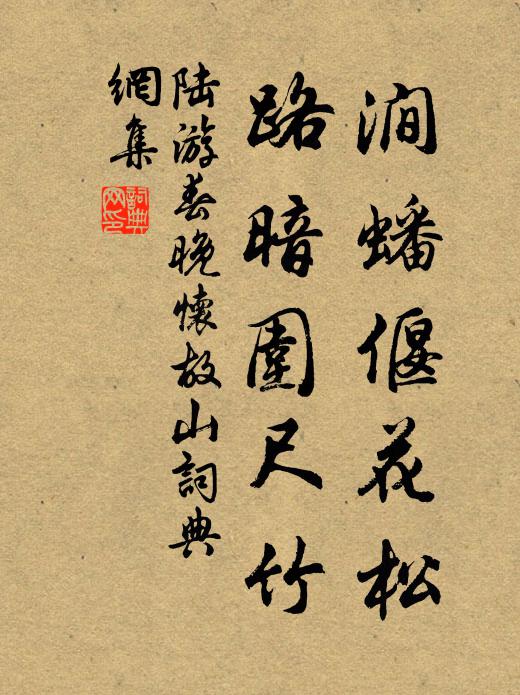 澗蟠偃花松
路暗圍尺竹
陆游春晚懷故山詞典
網集
詞典网印